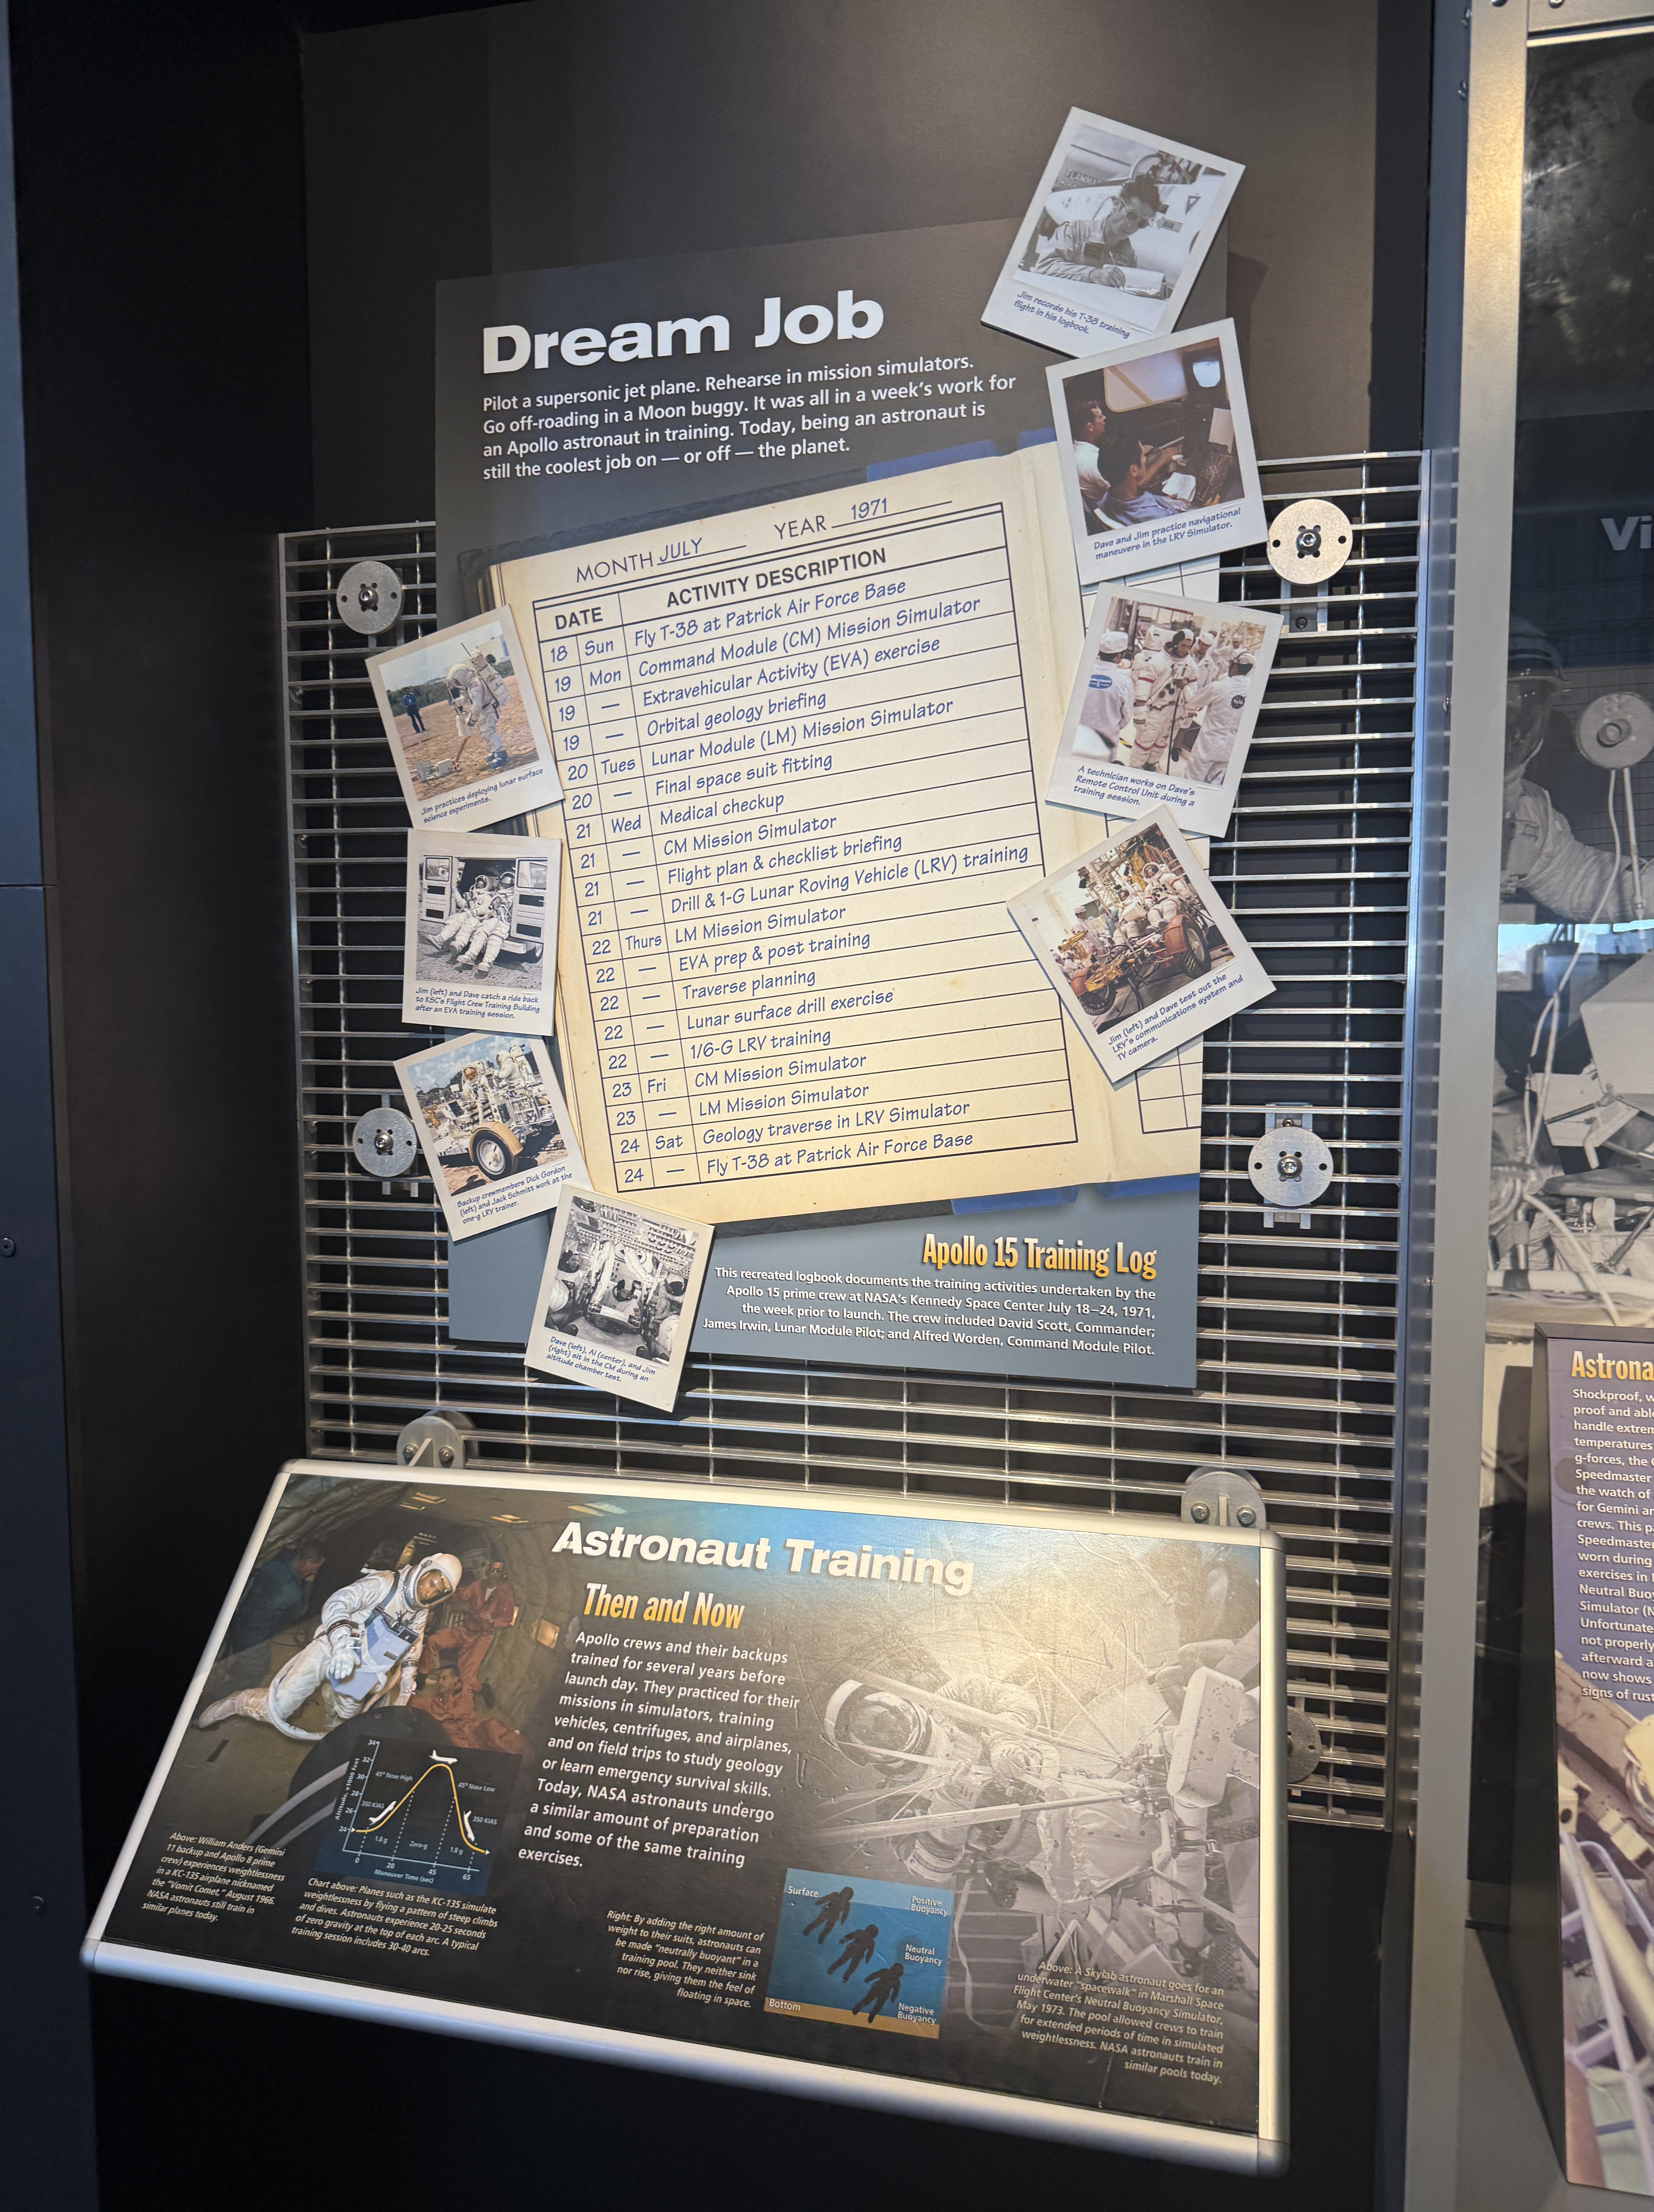 Dream Job
Pilot a supersonic jet plane. Rehearse in mission simulators.
Go off-roading in a Moon buggy. It was all in a week's work for
an Apollo astronaut in training. Today, being an astronaut is
still the coolest job on — or off — the planet.
MONTH JULY YEAR 1971
DATE ACTIVITY DESCRIPTION
18 Sun Fly T-38 at Patrick Air Force Base
19 Mon Command Module (CM) Mission Simulator
19 — Extravehicular Activity (EVA) exercise
19 — Orbital geology briefing
20 Tues Lunar Module (LM) Mission Simulator
20 — Final space suit fitting
21 Wed Medical checkup
21 — CM Mission Simulator
21 — Flight plan & checklist briefing
21 — Drill & 1-G Lunar Roving Vehicle (LRV) training
22 Thurs LM Mission Simulator
22 — EVA prep & post training
22 — Traverse planning
22 — Lunar surface drill exercise
22 — 1/6-G LRV training
23 Fri CM Mission Simulator
23 — LM Mission Simulator
24 Sat Geology traverse in LRV Simulator
24 — Fly T-38 at Patrick Air Force Base
Jim records his T-38 training
flight in his logbook.
Dave and Jim practice navigational
maneuvers in the LRV Simulator.
A technician works on Dave's
Remote Control Unit during a
training session.
Jim (left) and Dave test out the
LRV's communications system and
TV camera.
Jim practices deploying lunar surface
science experiments.
Jim (left) and Dave catch a ride back
to KSC's Flight Crew Training Building
after an EVA training session.
Backup crewmembers Dick Gordon
(left) and Jack Schmitt work at the
one-g LRV trainer.
Dave (left), Al (center), and Jim
(right) sit in the CM during an
altitude chamber test.
Apollo 15 Training Log
This recreated logbook documents the training activities undertaken by the
Apollo 15 prime crew at NASA's Kennedy Space Center July 18–24, 1971,
the week prior to launch. The crew included David Scott, Commander;
James Irwin, Lunar Module Pilot; and Alfred Worden, Command Module Pilot.
Astronaut Training
Then and Now
Apollo crews and their backups
trained for several years before
launch day. They practiced for their
missions in simulators, training
vehicles, centrifuges, and airplanes,
and on field trips to study geology
or learn emergency survival skills.
Today, NASA astronauts undergo
a similar amount of preparation
and some of the same training
exercises.
34
32
30
28
26
24
Altitude, x1000 feet
45° Nose High
45° Nose Low
350 KIAS
350 KIAS
1.8 g
Zero-g
1.8 g
0
20
45
65
Maneuver Time (sec)
Above: William Anders (Gemini
11 backup and Apollo 8 prime
crew) experiences weightlessness
in a KC-135 airplane nicknamed
the "Vomit Comet," August 1966.
NASA astronauts still train in
similar planes today.
Chart above: Planes such as the KC-135 simulate
weightlessness by flying a pattern of steep climbs
and dives. Astronauts experience 20-25 seconds
of zero gravity at the top of each arc. A typical
training session includes 30-40 arcs.
Right: By adding the right amount of
weight to their suits, astronauts can
be made "neutrally buoyant" in a
training pool. They neither sink
nor rise, giving them the feel of
floating in space.
Surface
Positive
Buoyancy
Neutral
Buoyancy
Negative
Buoyancy
Bottom
Above: A Skylab astronaut goes for an
underwater "spacewalk" in Marshall Space
Flight Center's Neutral Buoyancy Simulator,
May 1973. The pool allowed crews to train
for extended periods of time in simulated
weightlessness. NASA astronauts train in
similar pools today.
Vi
Astrona
Shockproof, w
proof and able
handle extrem
temperatures
g-forces, the
Speedmaster
the watch of
for Gemini an
crews. This p
Speedmaster
worn during
exercises in
Neutral Buoy
Simulator (N
Unfortunate
not properly
afterward a
now shows
signs of rust